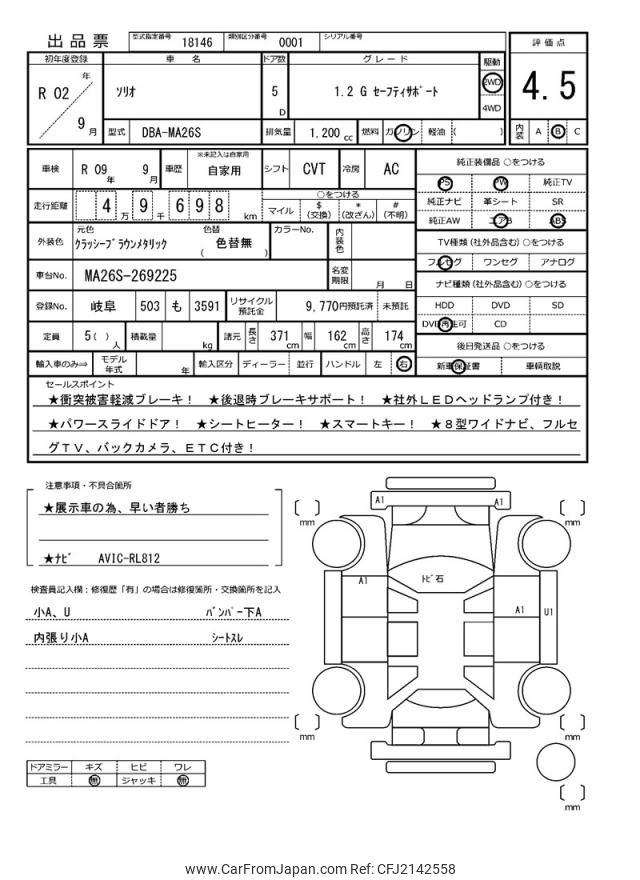 出品票 型式指定番号 18146 類別区分番号 0001 シリアル番号
初年度登録 車名 ドア数 グレード 駆動 評価点
R 02 年 9 月 ソリオ 5 D 1.2 G セーフティサポート 2WD 4WD 4.5
型式 DBA-MA26S 排気量 1,200 cc 燃料 ガソリン 軽油 ( ) 内装 A B C
車検 R 09 年 9 月 車歴 ※未記入は自家用 自家用 シフト CVT 冷房 AC
走行距離 4 万 9 千 6 9 8 km ○をつける マイル $ (交換) * (改ざん) # (不明)
外装色 元色 クラッシーブラウンメタリック 色替 ( 色替無 ) カラーNo. 内装色
車台No. MA26S-269225 名変期限 月 日
登録No. 岐阜 503 も 3591 リサイクル預託金 9,770円預託済 未預託
定員 5 ( ) 人 積載量 kg 諸元 長さ 371 cm 幅 162 cm 高さ 174 cm
輸入車のみ⇒ モデル年式 年 輸入区分 ディーラー 並行 ハンドル 左 右
純正装備品 ○をつける
PS PW 純正TV
純正ナビ 革シート SR
純正AW エアB ABS
TV種類(社外品含む) ○をつける
フルセグ ワンセグ アナログ
ナビ種類(社外品含む) ○をつける
HDD DVD SD
DVD再生可 CD
後日発送品 ○をつける
新車保証書 車輌取説
セールスポイント
★衝突被害軽減ブレーキ! ★後退時ブレーキサポート! ★社外LEDヘッドランプ付き!
★パワースライドドア! ★シートヒーター! ★スマートキー! ★8型ワイドナビ、フルセ
グTV、バックカメラ、ETC付き!
注意事項・不具合箇所
★展示車の為、早い者勝ち
★ナビ AVIC-RL812
検査員記入欄:修復歴「有」の場合は修復箇所・交換箇所を記入
小A、U バンパー下A
内張り小A シートスレ
ドアミラー キズ ヒビ ワレ
工具 無 ジャッキ 無
A1 A1
mm mm
トビ石
A1 A1 U1
mm mm
mm
www.CarFromJapan.com Ref: CFJ2142558